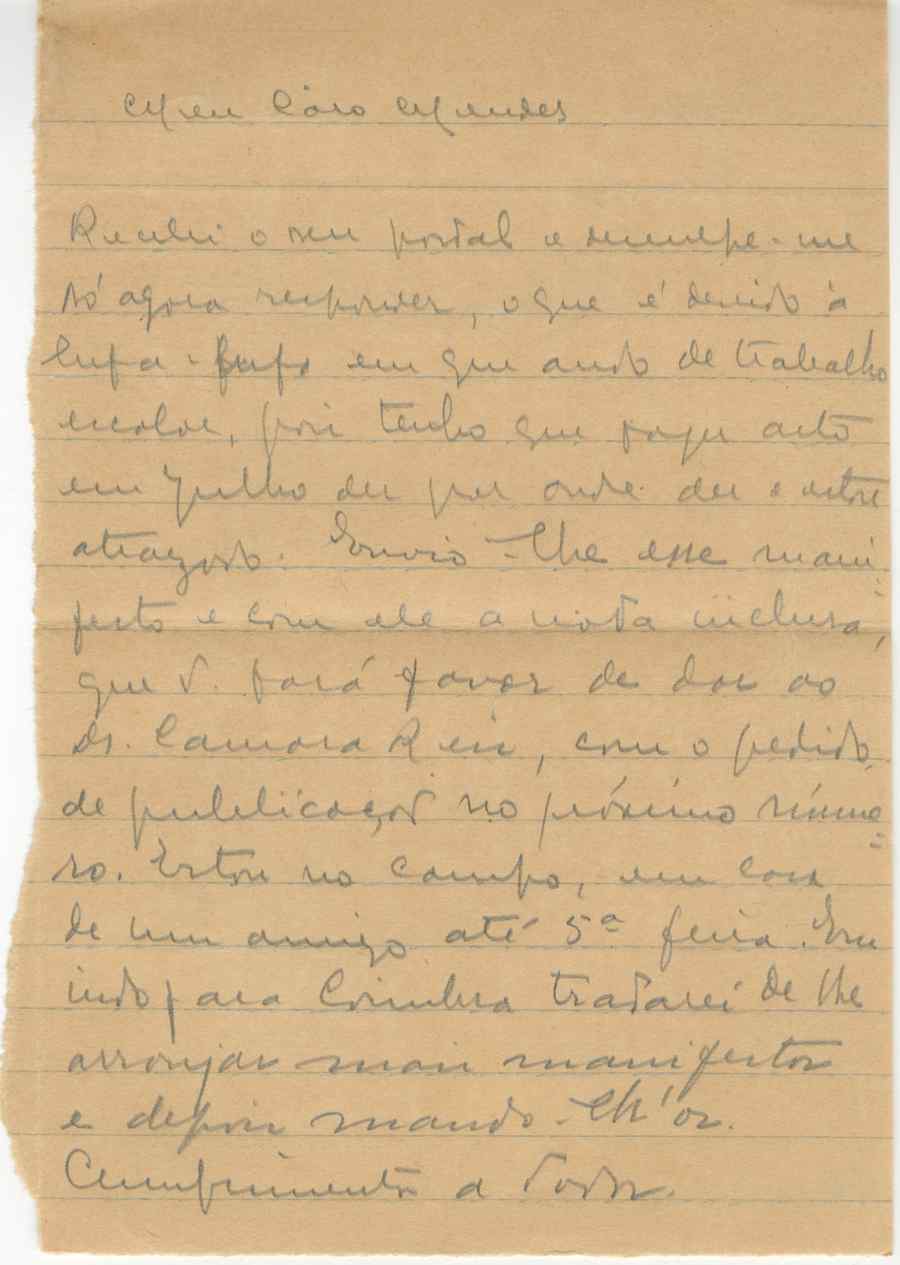 Meu Caro Mendes
Recebi o seu postal e desculpe-me
só agora responder, o que é devido à
lufa-lufa em que ando de trabalho
escolar, pois tenho que fazer acto
em Julho der por onde der e estou
atrazado. Envio-lhe esse mani-
festo e com ele a nota inclusa,
que V. fará favor de dar ao
Dr. Camara Reis, com o pedido
de publicação no próximo núme=
ro. Estou no campo, em casa
de um amigo até 5ª feira. Em
indo para Coimbra tratarei de lhe
arranjar mais manifestos
e depois mando-lh'os.
Cumprimentos a todos.